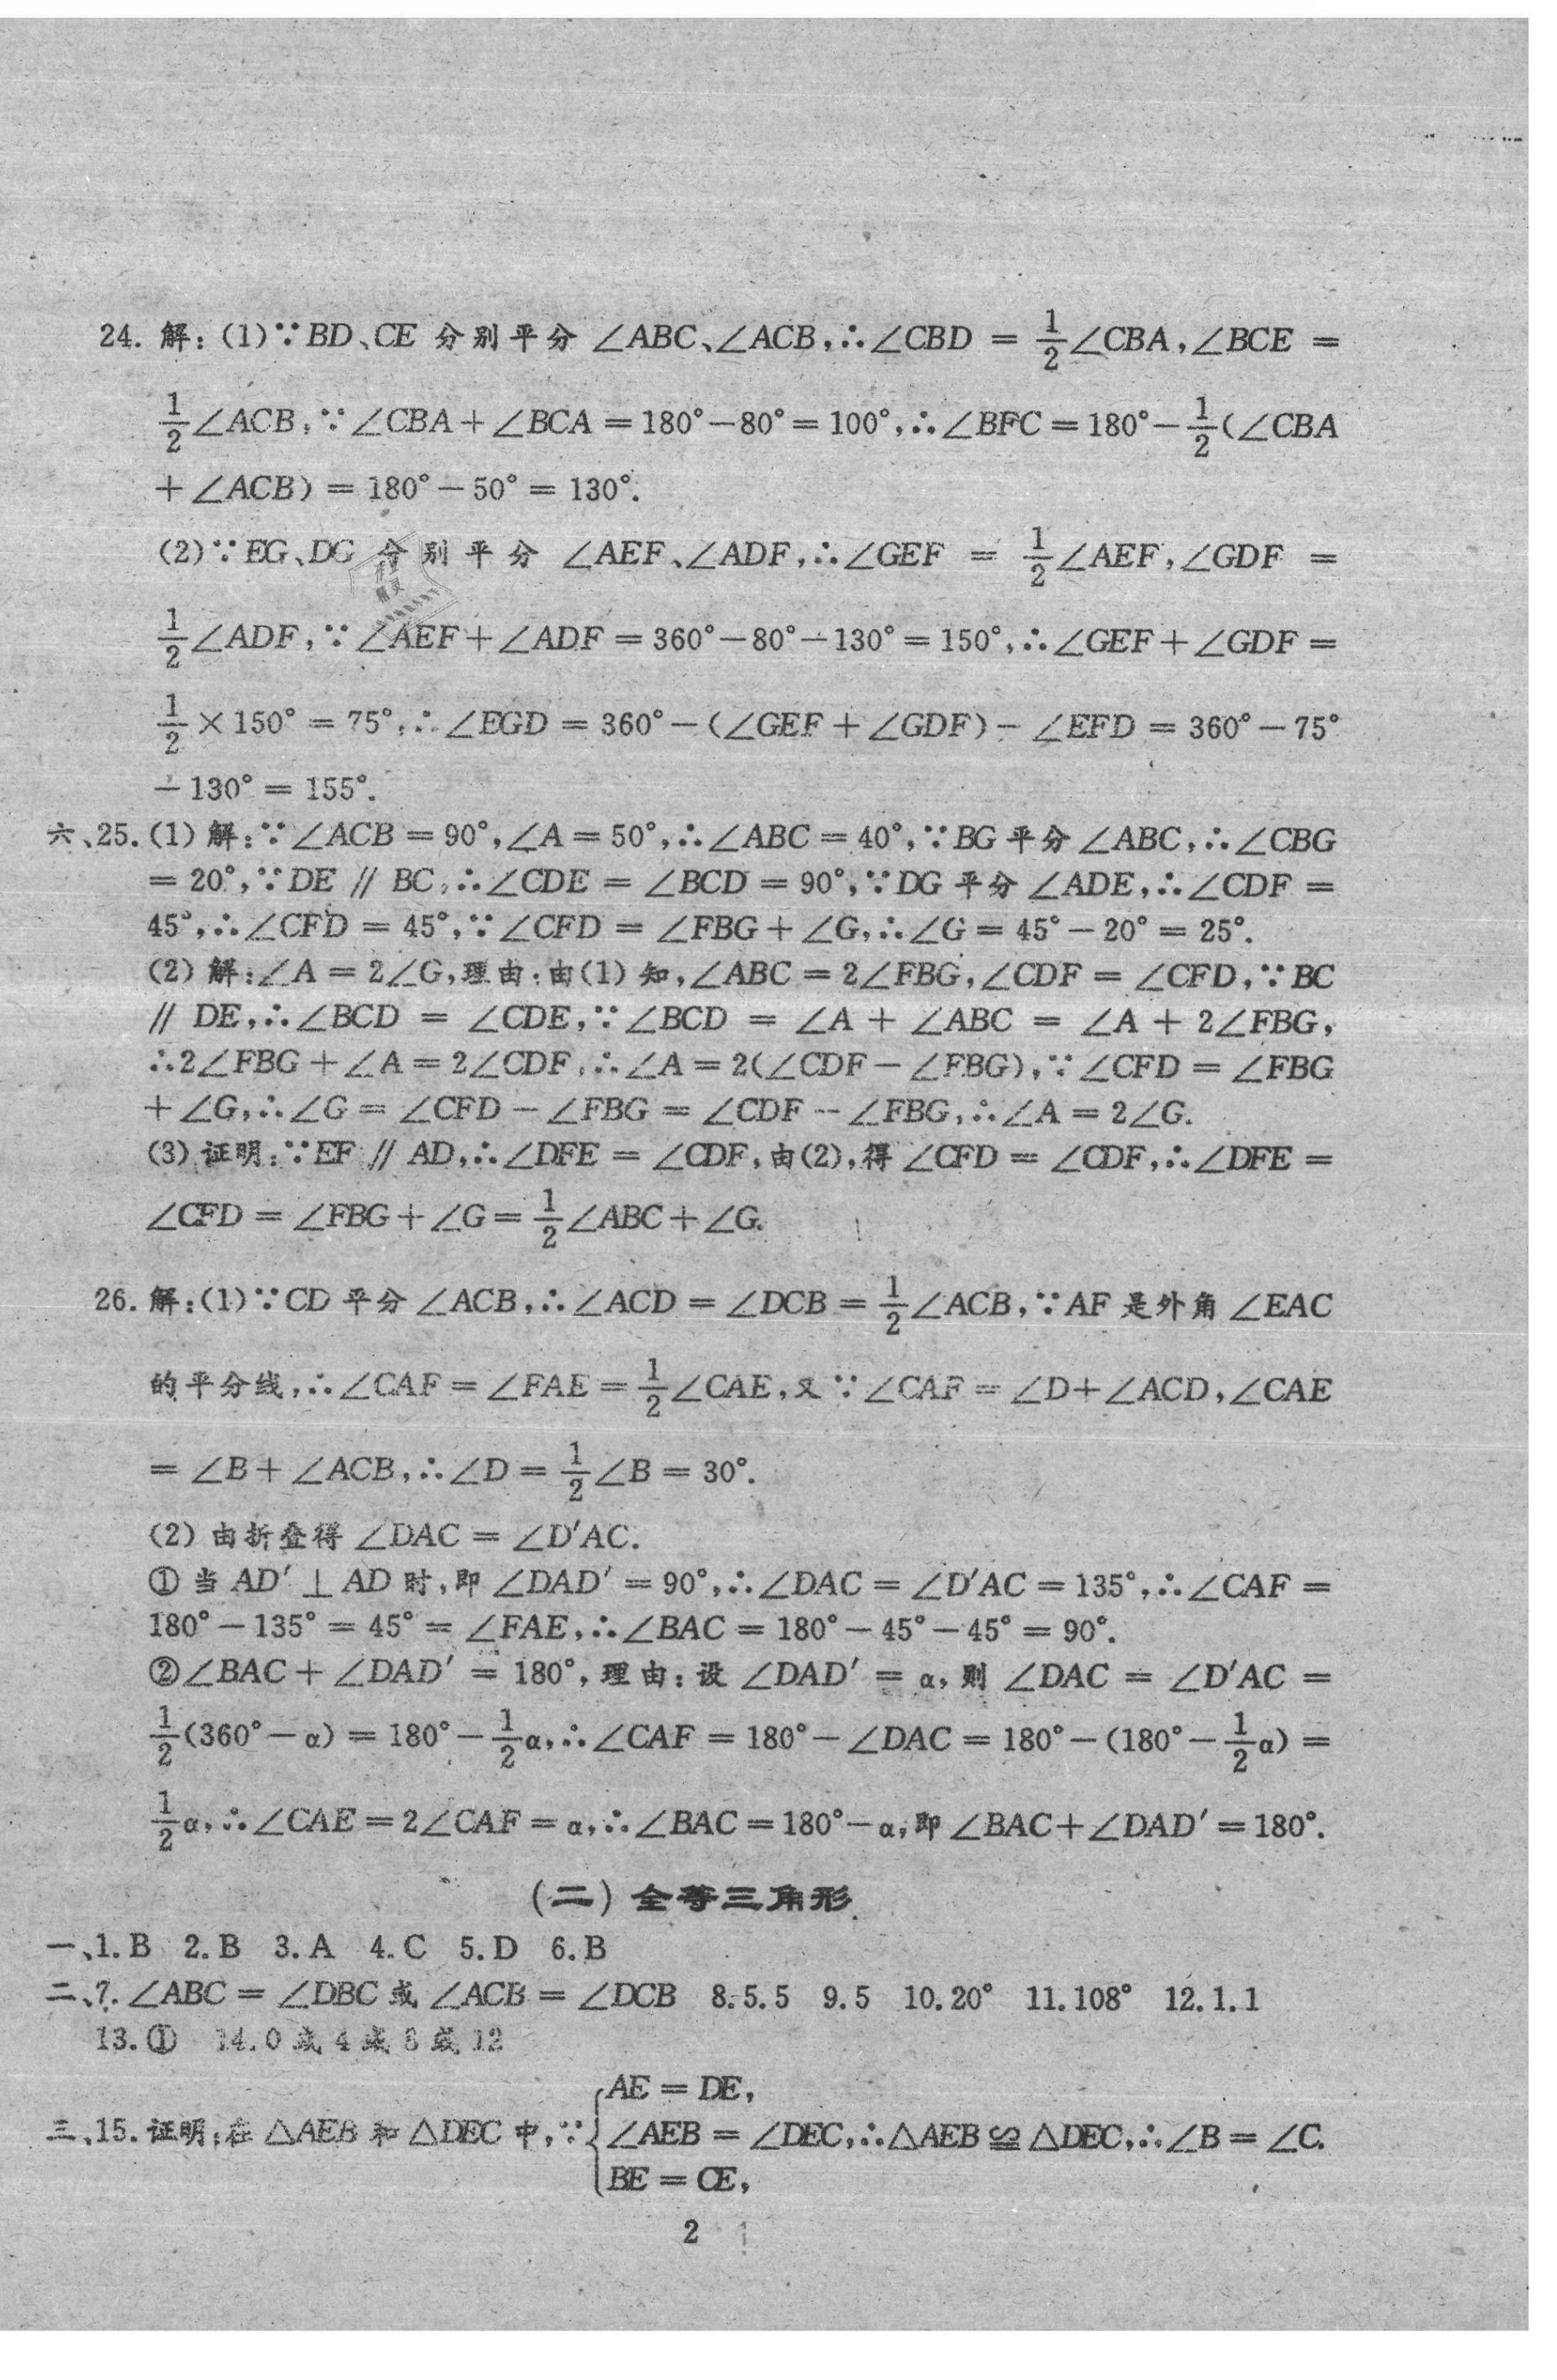 24. 解:(1)∵BD、CE 分别平分 ∠ABC、∠ACB,∴∠CBD = 1/2∠CBA,∠BCE =
1/2∠ACB,∵∠CBA+∠BCA=180°-80°=100°,∴∠BFC=180°-1/2(∠CBA
+∠ACB)=180°-50°=130°.
(2)∵EG、DG 分别平分 ∠AEF、∠ADF,∴∠GEF = 1/2∠AEF,∠GDF =
1/2∠ADF,∵∠AEF+∠ADF=360°-80°-130°=150°,∴∠GEF+∠GDF=
1/2×150°=75°,∴∠EGD=360°-(∠GEF+∠GDF)-∠EFD=360°-75°
-130°=155°.
六、25.(1)解:∵∠ACB=90°,∠A=50°,∴∠ABC=40°,∵BG平分∠ABC,∴∠CBG
=20°,∵DE∥BC,∴∠CDE=∠BCD=90°,∵DG平分∠ADE,∴∠CDF=
45°,∴∠CFD=45°,∵∠CFD=∠FBG+∠G,∴∠G=45°-20°=25°.
(2)解:∠A=2∠G,理由:由(1)知,∠ABC=2∠FBG,∠CDF=∠CFD,∵BC
∥DE,∴∠BCD=∠CDE,∵∠BCD=∠A+∠ABC=∠A+2∠FBG,
∴2∠FBG+∠A=2∠CDF,∴∠A=2(∠CDF-∠FBG),∵∠CFD=∠FBG
+∠G,∴∠G=∠CFD-∠FBG=∠CDF-∠FBG,∴∠A=2∠G.
(3)证明:∵EF∥AD,∴∠DFE=∠CDF,由(2),得∠CFD=∠CDF,∴∠DFE=
∠CFD=∠FBG+∠G=1/2∠ABC+∠G.
26. 解:(1)∵CD平分∠ACB,∴∠ACD=∠DCB=1/2∠ACB,∵AF是外角∠EAC
的平分线,∴∠CAF=∠FAE=1/2∠CAE,又∵∠CAF=∠D+∠ACD,∠CAE
=∠B+∠ACB,∴∠D=1/2∠B=30°.
(2)由折叠得∠DAC=∠D′AC.
①当AD′⊥AD时,即∠DAD′=90°,∴∠DAC=∠D′AC=135°,∴∠CAF=
180°-135°=45°=∠FAE,∴∠BAC=180°-45°-45°=90°.
②∠BAC+∠DAD′=180°,理由:设∠DAD′=α,则∠DAC=∠D′AC=
1/2(360°-α)=180°-1/2α,∴∠CAF=180°-∠DAC=180°-(180°-1/2α)=
1/2α,∴∠CAE=2∠CAF=α,∴∠BAC=180°-α,即∠BAC+∠DAD′=180°.
(二)全等三角形
一、1.B 2.B 3.A 4.C 5.D 6.B
二、7.∠ABC=∠DBC或∠ACB=∠DCB 8.5.5 9.5 10.20° 11.108° 12.1.1
13.① 14.0或4或8或12
AE=DE,
三、15.证明:在△AEB和△DEC中,∵{∠AEB=∠DEC,∴△AEB≌△DEC,∴∠B=∠C.
BE=CE,
2